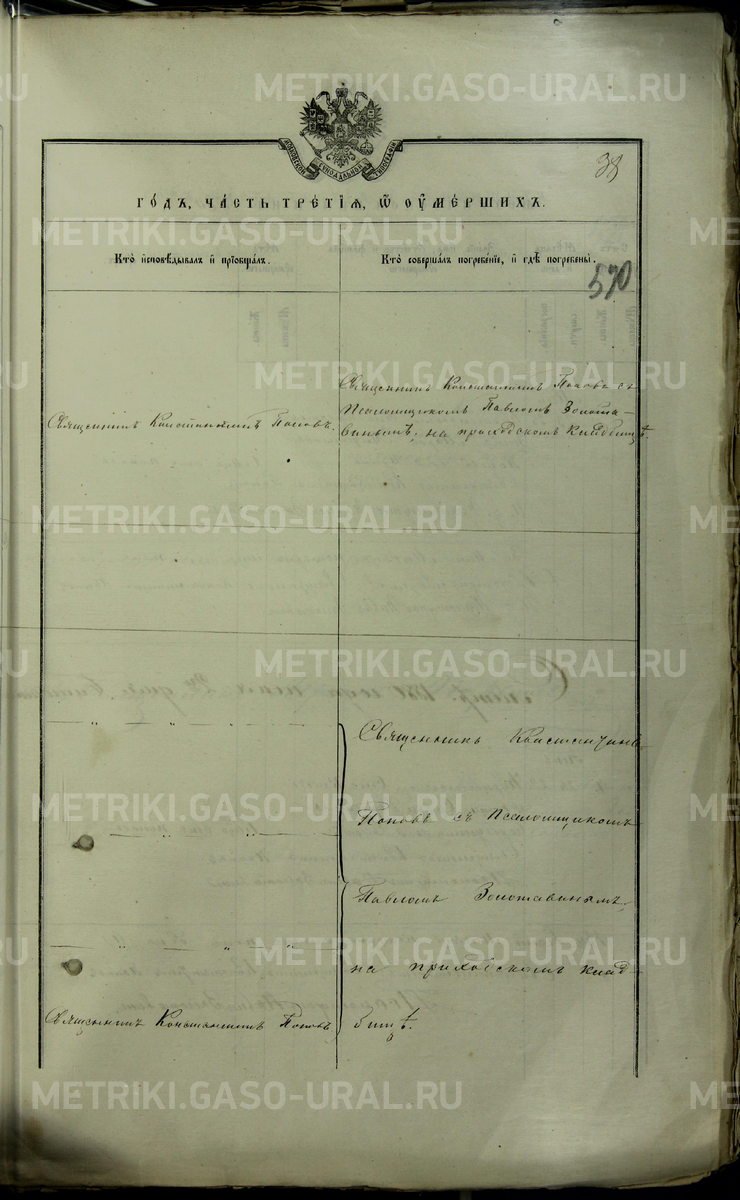 METRIKI.GASO-URAL.RU
МОСКОВСКОЙ СѴНОДАЛЬНОЙ ТИПОГРАФІИ
38
ГО́ДЪ, ЧА́СТЬ ТРЕ́ТІЯ, Ѿ ОУ҆МЕ́РШИХЪ.
Кто̀ и҆сповѣ́дывалъ и҆ прїѡбща́лъ.
Кто̀ соверша́лъ погребе́нїе, и҆ гдѣ̀ погребены̀.
570
Священникъ Константинъ Поповъ.
Священникъ Константинъ Поповъ съ
Псаломщикомъ Павломъ Золота-
винымъ, на приходскомъ кладбищѣ.
Священникъ Константинъ
Поповъ съ Псаломщикомъ
Павломъ Золотавинымъ,
на приходскомъ клад-
бищѣ.
Священникъ Константинъ Поповъ